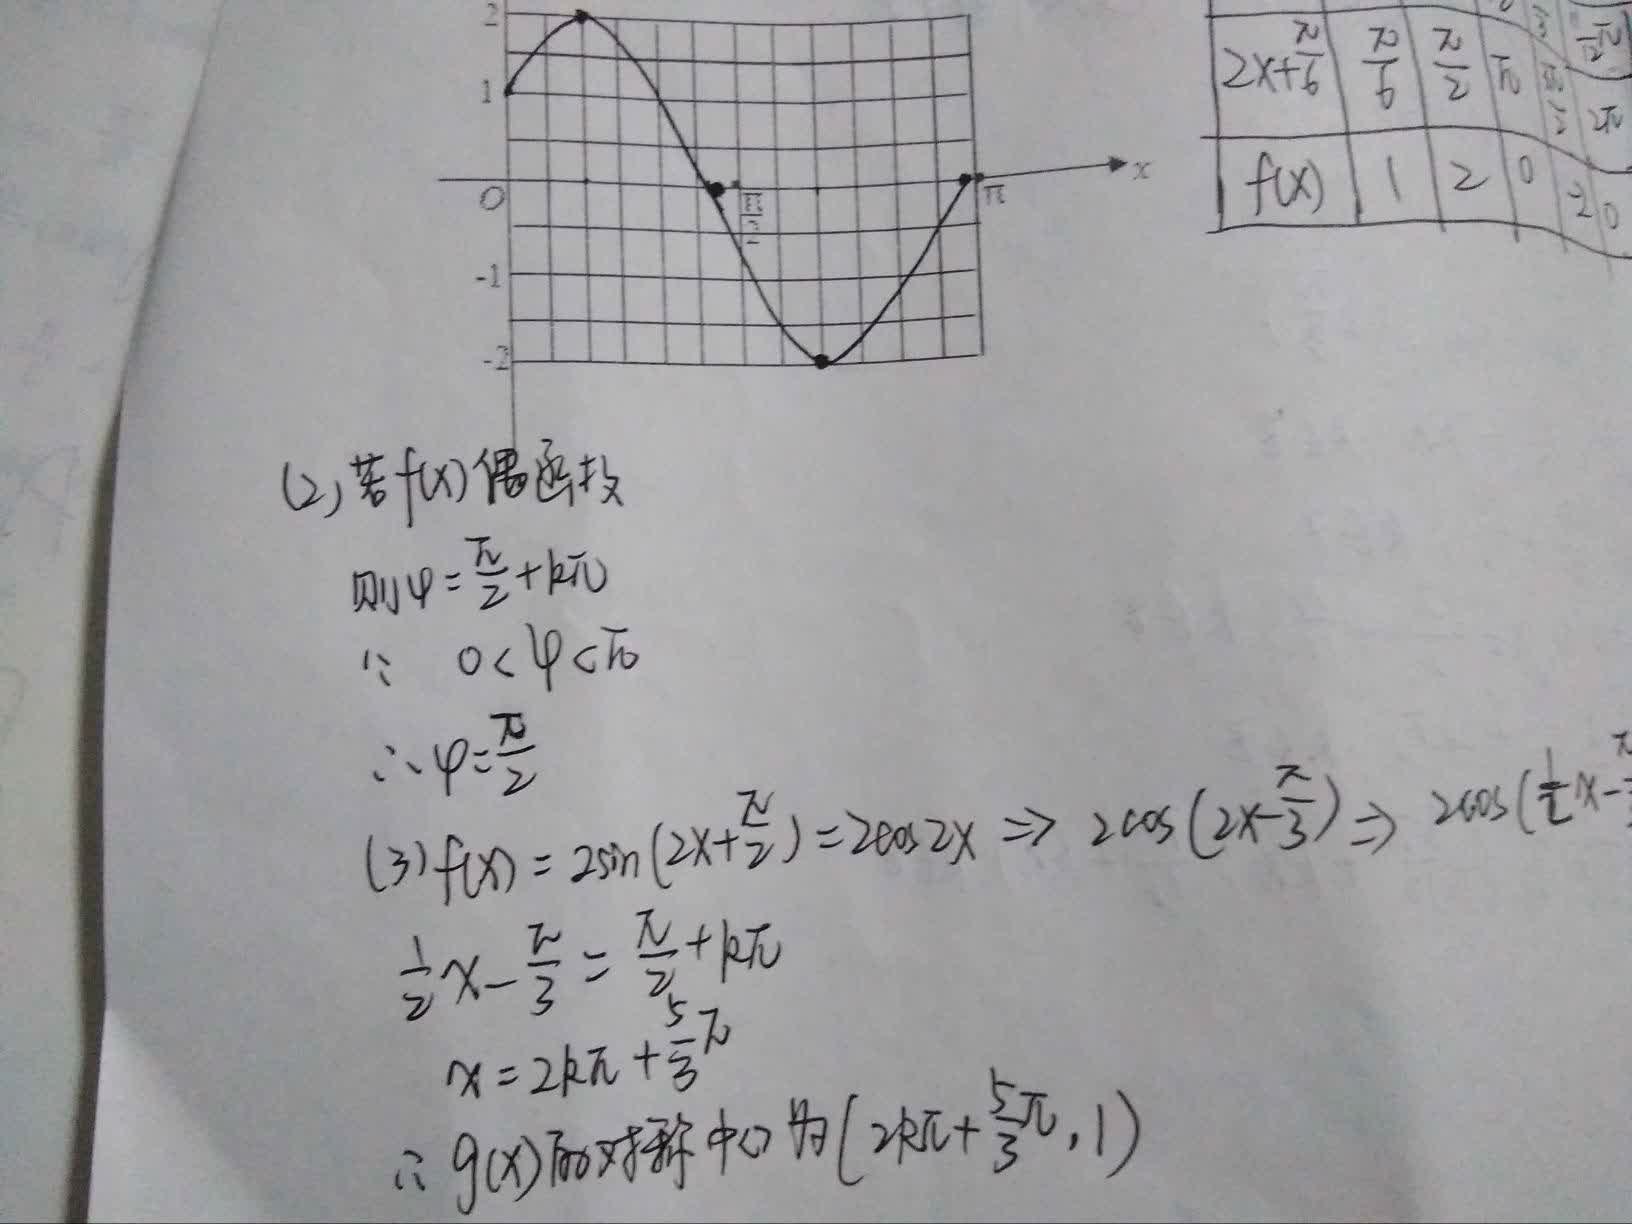 2
1
0
-1
-2
π
x
2x+π/6 π/6 π/2 π 2π
f(x) 1 2 0 -2 0
(2)若f(x)偶函数
则φ=π/2+kπ
∵ 0<φ<π
∴φ=π/2
(3)f(x)=2sin(2x+π/2)=2cos2x⇒2cos(2x-π/3)⇒2cos(1/2x-
1/2x-π/3=π/2+kπ
x=2kπ+5/3π
∴g(x)的对称中心为(2kπ+5/3π,1)